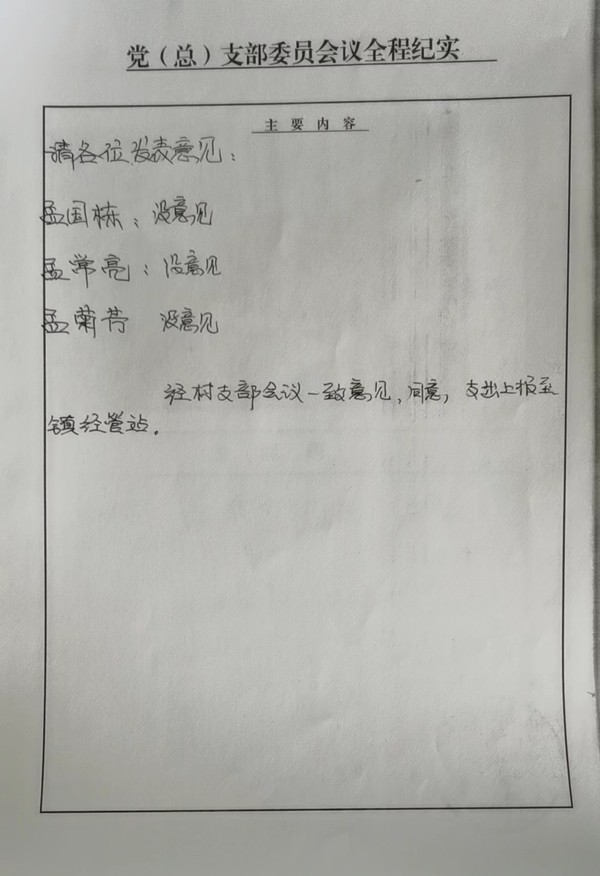 党（总）支部委员会议全程纪实
主要内容
请各位发表意见：
孟国栋：没意见
孟常亮：没意见
孟菊芳 没意见
经村支部会议一致意见，同意，支出上报至
镇经管站。